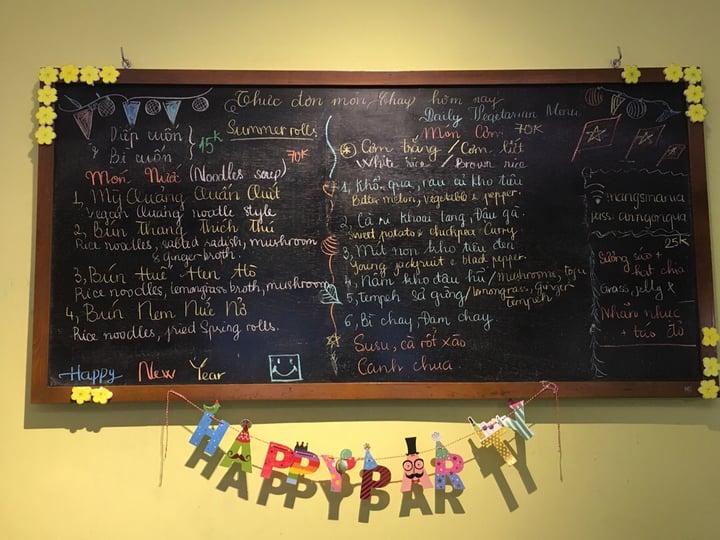 Thức đơn món chay hôm nay
Daily Vegetarian Menu
Diếp cuốn
& Bì cuốn
15k
Summer rolls
70K
Món Nước (Noodles soup)
1, Mỳ Quảng Quấn Quít
Vegan Quảng noodle style
2, Bún Thang thích thú
Rice noodles, salted radish, mushroom
& ginger broth.
3, Bún Huế Hen Hò
Rice noodles, lemongrass broth, mushroom
4, Bún Nem Nức Nở
Rice noodles, fried Spring rolls.
Happy New Year
Món Cơm 70K
Cơm trắng / Cơm lứt
White rice / Brown rice
1, Khổ qua, rau củ kho tiêu
Bitter melon, vegetable & pepper.
2, Cà ri khoai lang, Đậu gà.
Sweet potato & chickpea Curry
3, Mít non kho tiêu đen
Young jackfruit & black pepper.
4, Nấm kho đậu hũ / mushrooms, tofu
5, Tempeh sả gừng / lemongrass, ginger
tempeh
6, Bì chay, Đạm chay
Susu, cà rốt xào
Canh chua
mangsmania
pass: anngonqua
25k
Sương sáo +
hạt chia
Grass jelly &
Nhãn nhục
+ táo đỏ
HAPPY PARTY